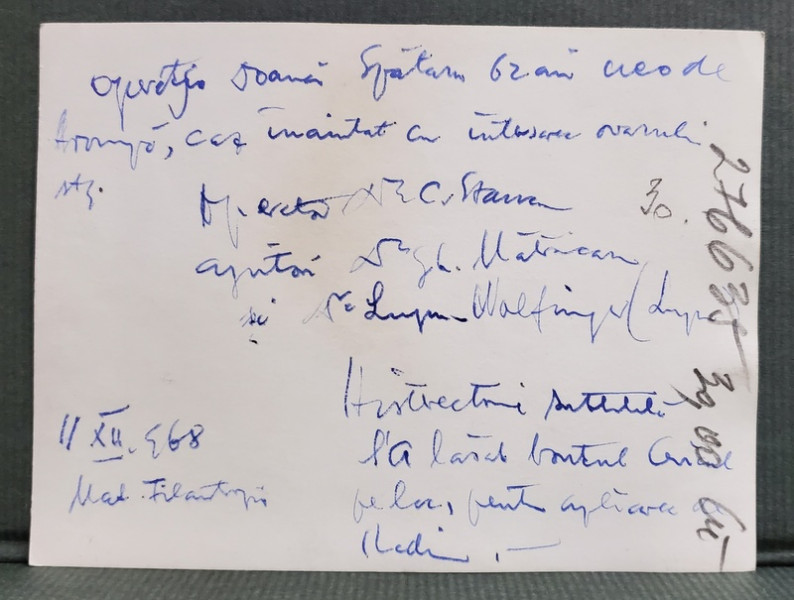 operația Doamnei Spătaru 62 ani neo de
trompă, caz înaintat cu interesarea ovarului
stg.
Operator Dr C. Stanca
30.
ajutor Dr Gh. Mătăsaru
și Dr Lupu Wolfinger (Lupu
Histerectomie subtotală
S'a lăsat bontul
pe loc, pentru aplicarea de
Radiu.
11 XII. 968
Mat. Filantropia